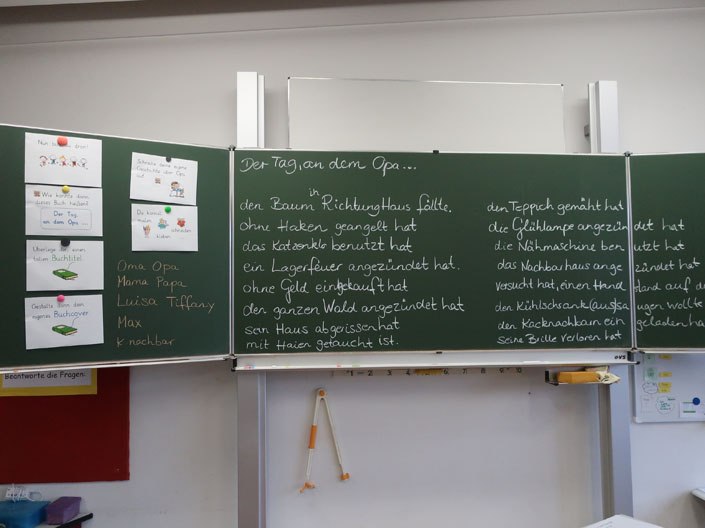 Nun
dran!
Wie könnte denn
dieses Buch heißen?
Der Tag,
an dem Opa ...
Überlege dir einen
tollen Buchtitel.
Gestalte dann dein
eigenes Buchcover
Schreibe deine eigene
Geschichte über Opa
auf
Du kannst
malen
schneiden
kleben
Oma Opa
Mama Papa
Luisa Tiffany
Max
K nachbar
Der Tag, an dem Opa...
den Baum in Richtung Haus fällte.
ohne Haken geangelt hat
das Katzenklo benutzt hat
ein Lagerfeuer angezündet hat.
ohne Geld eingekauft hat
den ganzen Wald angezündet hat
sein Haus abgerissen hat
mit Haien getaucht ist.
den Teppich gemäht hat
die Glühlampe angezündet hat
die Nähmaschine benutzt hat
das Nachbarhaus angezündet hat
versucht hat, einen Handstand auf d
den Kühlschrank (aus)saugen wollte
den Kacknachbarn eingeladen ha
seine Brille verloren hat
Beantworte die Fragen.